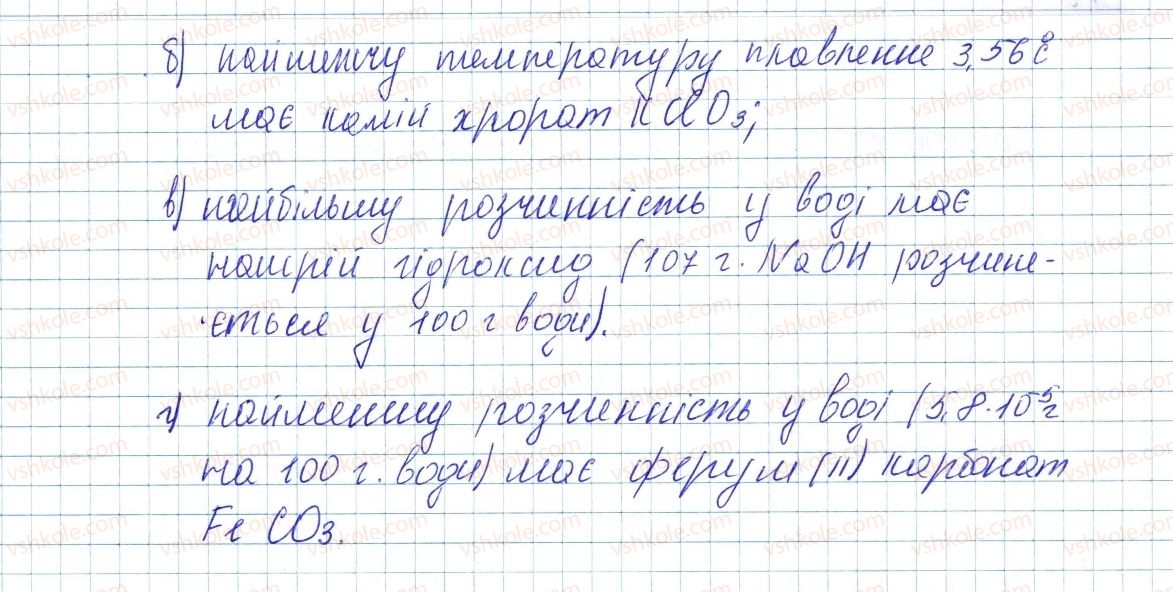 б) найменшу температуру плавлення 3,56°C
має калій хлорат KClO₃;
в) найбільшу розчинність у воді має
натрій гідроксид (107 г. NaOH розчиня-
ється у 100 г води).
г) найменшу розчинність у воді (5,8·10⁻⁵г
на 100 г. води) має ферум (II) карбонат
FeCO₃.